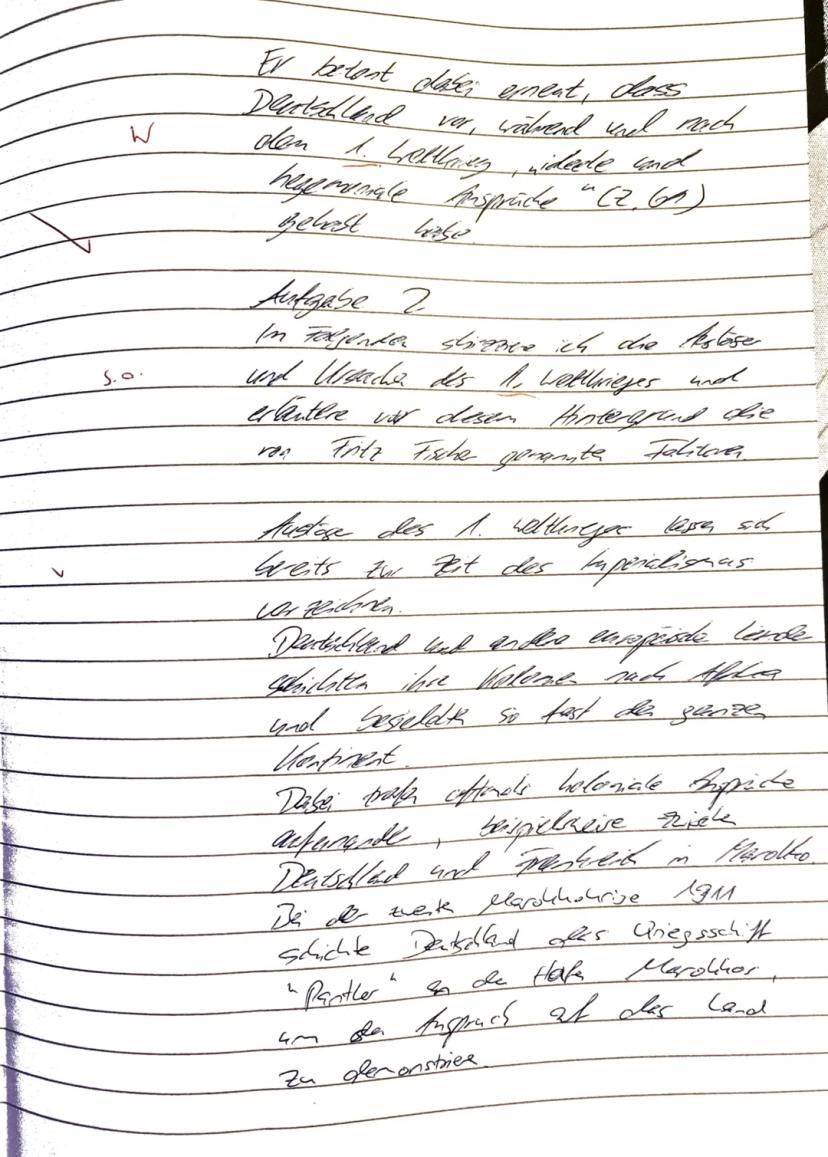 Er betont dabei erneut, dass
Deutschland vor, während und nach
W
dem 1. Weltkrieg „ideele und
hegemoniale Ansprüche" (Z. 61)
gehabt habe.
Aufgabe 2
Im Folgenden skizziere ich die Auslöser
s.o.
und Ursachen des 1. Weltkrieges und
erläutere vor diesem Hintergrund die
von Fritz Fischer genannten Faktoren.
Auslöser des 1. Weltkrieges lassen sich
bereits zur Zeit des Imperialismus
verzeichnen.
Deutschland und andere europäische Länder
schickten ihre Kolonien nach Afrika
und besiedelten so fast den ganzen
Kontinent.
Dabei trafen oftmals koloniale Ansprüche
aufeinander, beispielsweise zwischen
Deutschland und Frankreich in Marokko.
Bei der zweiten Marokkokrise 1911
schickte Deutschland das Kriegsschiff
"Panther" an den Hafen Marokkos,
um den Anspruch auf das Land
zu demonstrieren.